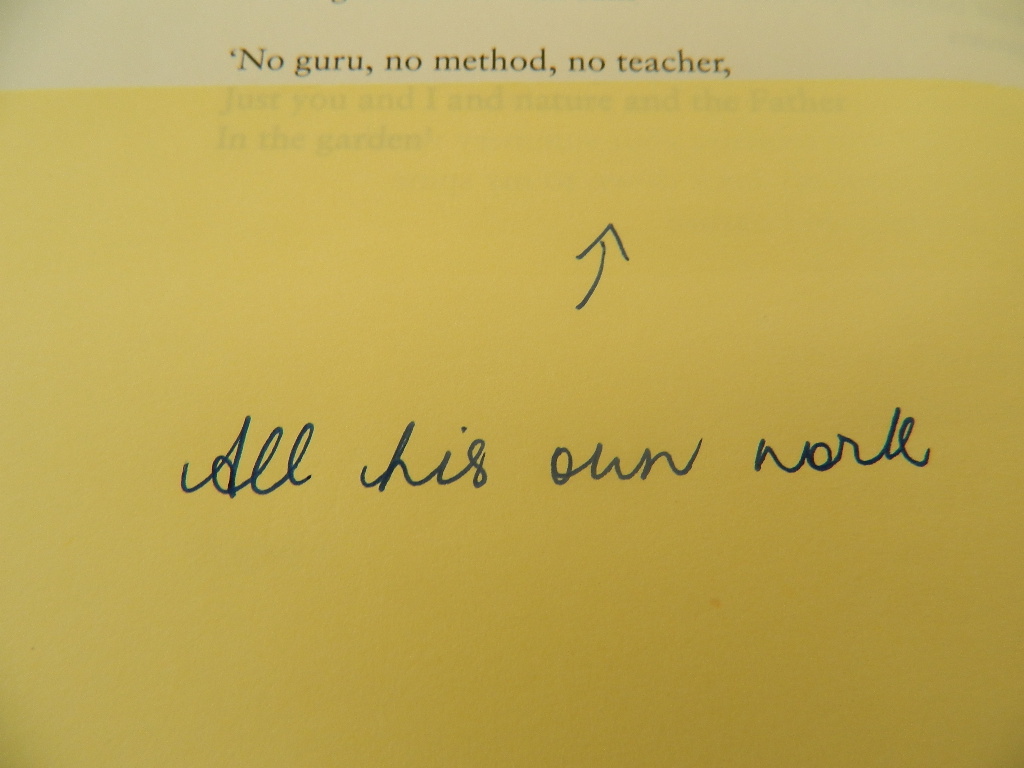 ‘No guru, no method, no teacher,
Just you and I and nature and the Father
In the garden’
All his own work